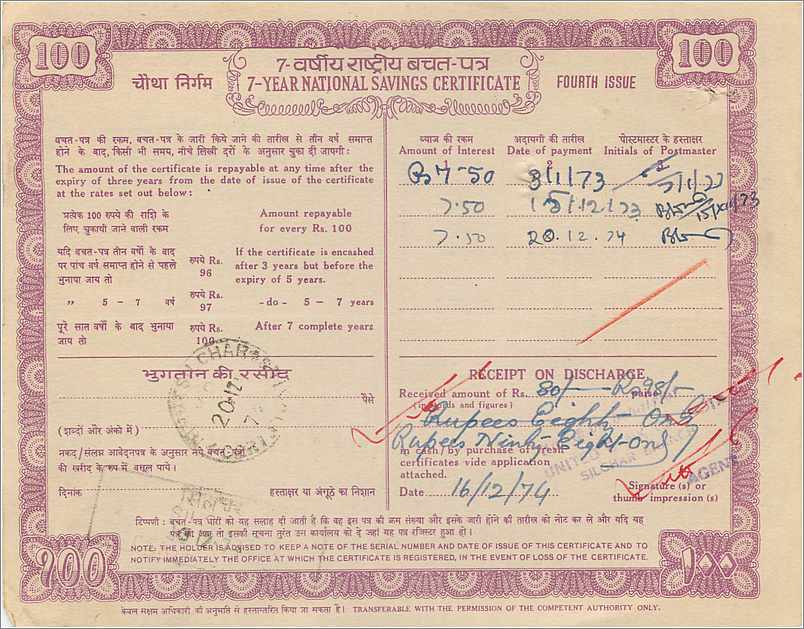 100
100
चौथा निर्गम
7-वर्षीय राष्ट्रीय बचत-पत्र
7-YEAR NATIONAL SAVINGS CERTIFICATE
FOURTH ISSUE
बचत-पत्र की रकम, बचत-पत्र के जारी किये जाने की तारीख से तीन वर्ष समाप्त
होने के बाद, किसी भी समय, नीचे लिखी दरों के अनुसार चुका दी जाएगी:
The amount of the certificate is repayable at any time after the
expiry of three years from the date of issue of the certificate
at the rates set out below:
प्रत्येक 100 रुपये की राशि के
लिए चुकायी जाने वाली रकम
Amount repayable
for every Rs. 100
यदि बचत-पत्र तीन वर्षों के बाद
पर पांच वर्ष समाप्त होने से पहले
भुनाया जाय तो
रुपये Rs.
96
If the certificate is encashed
after 3 years but before the
expiry of 5 years.
" 5 - 7 वर्ष
रुपये Rs.
97
-do- 5 - 7 years
पूरे सात वर्षों के बाद भुनाया
जाय तो
रुपये Rs.
100
After 7 complete years
भुगतान की रसीद
पैसे
(शब्दों और अंकों में)
नकद/संलग्न आवेदनपत्र के अनुसार नये बचत पत्रों
की खरीद के रूप में वसूल पाये।
दिनांक
हस्ताक्षर या अंगूठे का निशान
20.12
ब्याज की रकम
Amount of Interest
अदायगी की तारीख
Date of payment
पोस्टमास्टर के हस्ताक्षर
Initials of Postmaster
Rs 7-50 3/1/73
7.50 15/12/73
7.50 20.12.74
RECEIPT ON DISCHARGE
Received amount of Rs. 80/- Rs 98/- paise
(in words and figures)
Rupees Eighty Only
Rupees Ninty-Eight-only
in cash/by purchase of fresh
certificates vide application
attached.
UNITED
SILCHAR
AGENT
Date 16/12/74
Signature(s) or
thumb impression(s)
टिप्पणी: बचत-पत्र धारी को यह सलाह दी जाती है कि वह इस पत्र की क्रम संख्या और इसके जारी होने की तारीख को नोट कर ले और यदि यह
पत्र खो जाय तो इसकी सूचना तुरंत उस कार्यालय को दे जहां यह पत्र रजिस्टर हुआ हो।
NOTE: THE HOLDER IS ADVISED TO KEEP A NOTE OF THE SERIAL NUMBER AND DATE OF ISSUE OF THIS CERTIFICATE AND TO
NOTIFY IMMEDIATELY THE OFFICE AT WHICH THE CERTIFICATE IS REGISTERED, IN THE EVENT OF LOSS OF THE CERTIFICATE.
१००
१००
केवल सक्षम अधिकारी की अनुमति से हस्तान्तरित किया जा सकता है। TRANSFERABLE WITH THE PERMISSION OF THE COMPETENT AUTHORITY ONLY.